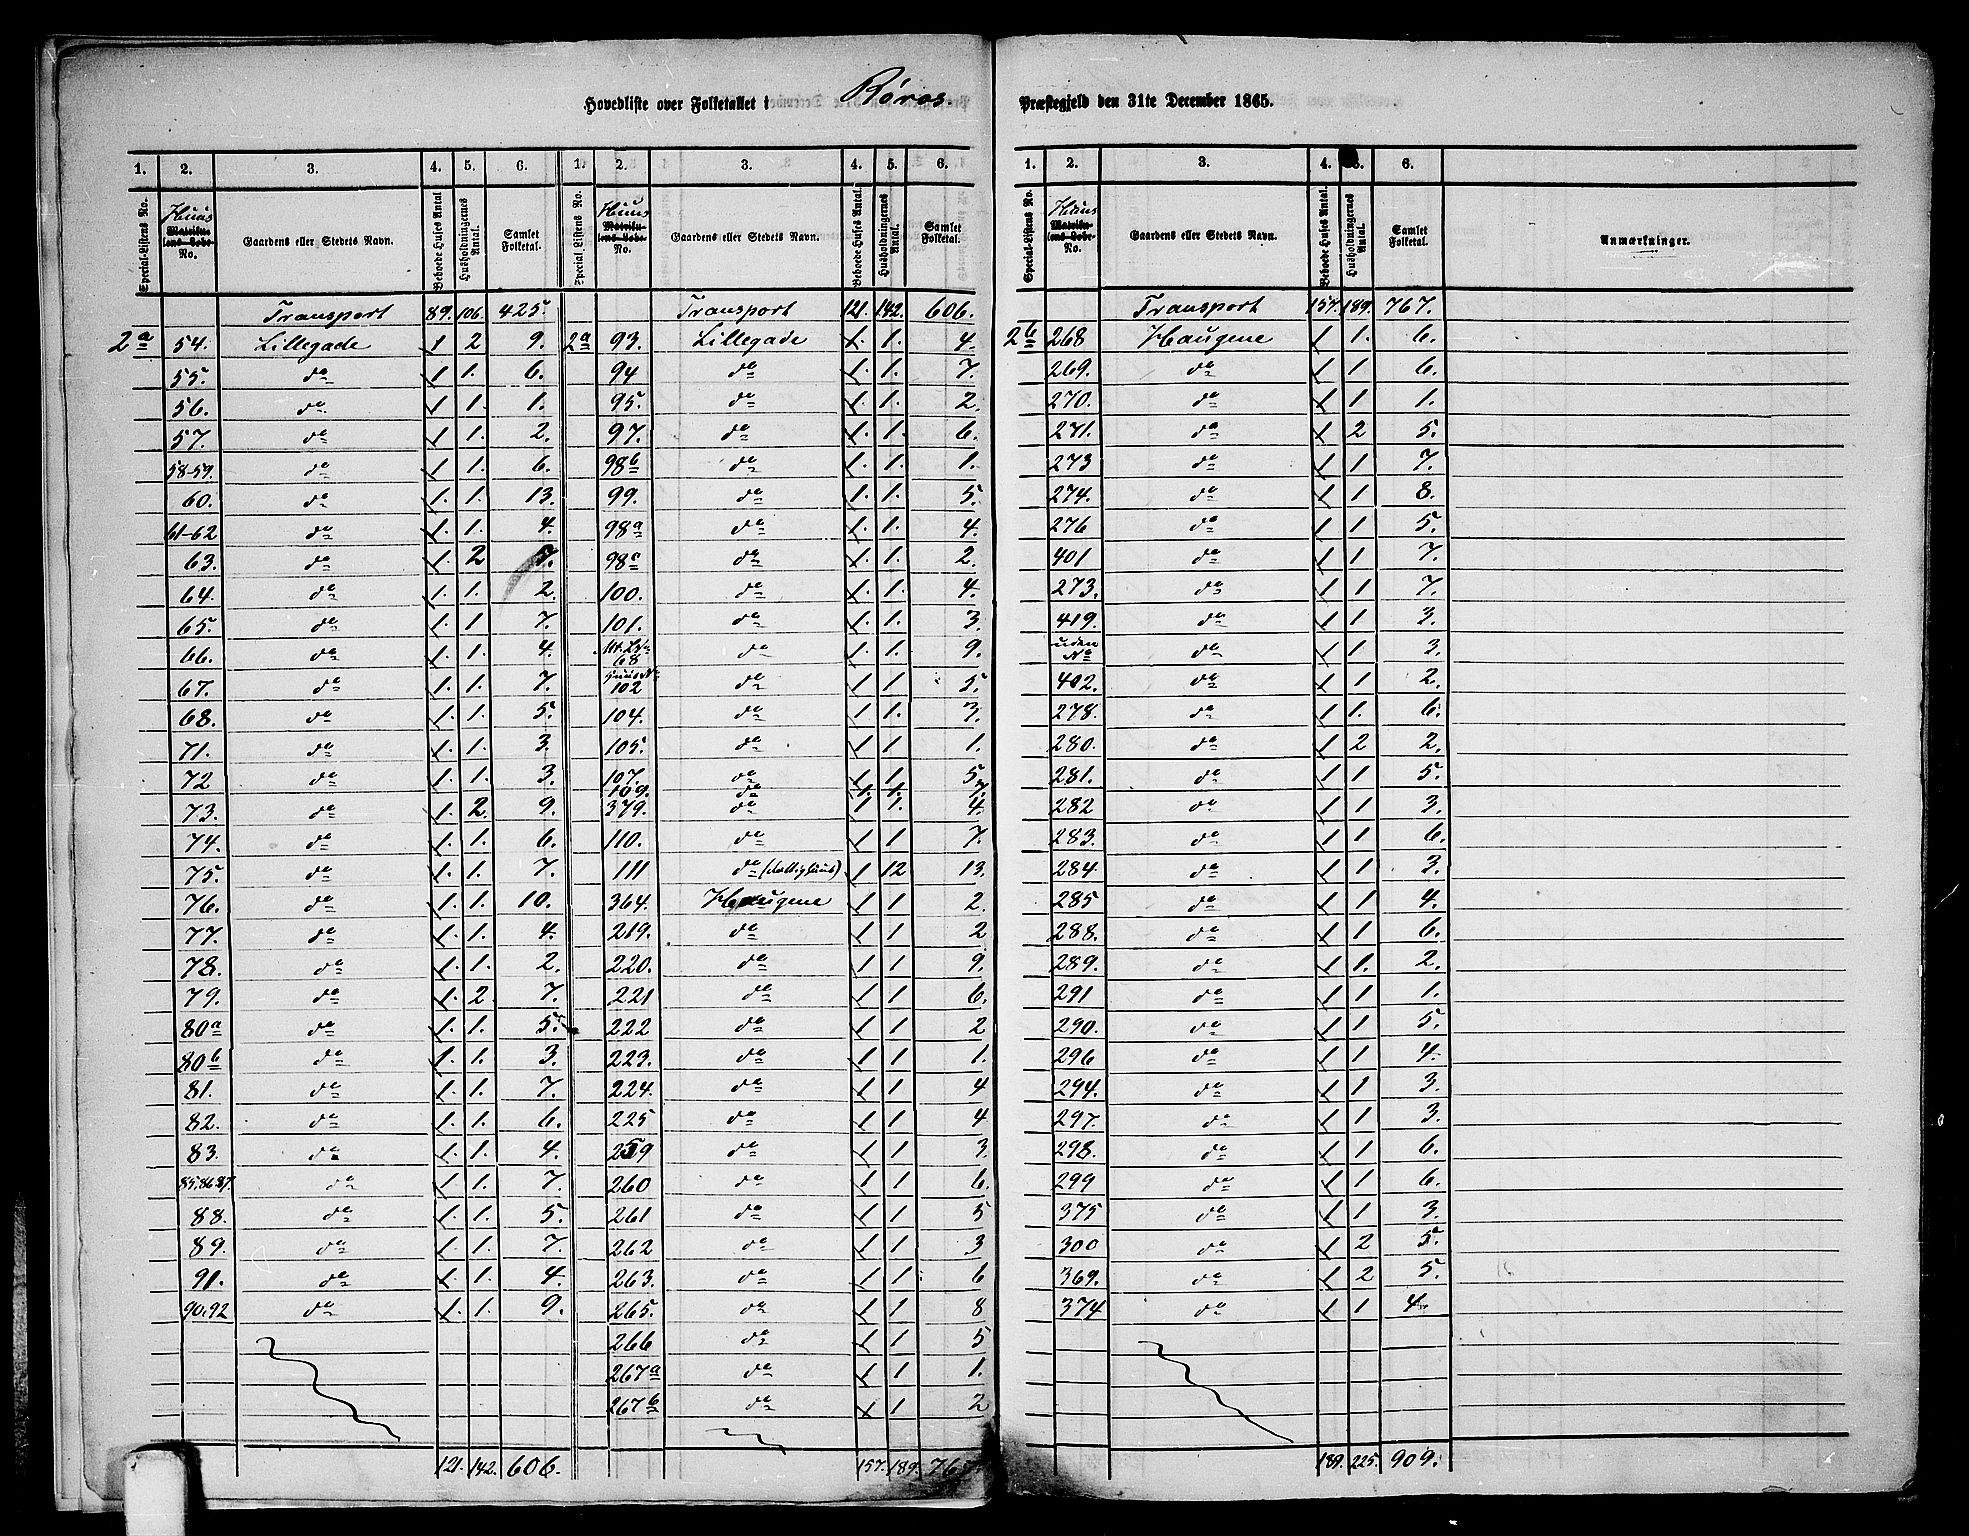 Hovedliste over Folketallet i Røros Præstegjeld den 31te December 1865.
1. 2. 3. 4. 5. 6. 1. 2. 3. 4. 5. 6. 1. 2. 3. 4. 5. 6.
Special-Listens No. Huus Matrikulens Løbe-No. Gaardens eller Stedets Navn. Beboede Huses Antal. Husholdningernes Antal. Samlet Folketal. Special-Listens No. Huus Matrikulens Løbe-No. Gaardens eller Stedets Navn. Beboede Huses Antal. Husholdningernes Antal. Samlet Folketal. Special-Listens No. Huus Matrikulens Løbe-No. Gaardens eller Stedets Navn. Beboede Huses Antal. Husholdningernes Antal. Samlet Folketal. Anmærkninger.
Transport 89. 106. 425. Transport 121. 142. 606. Transport 157. 189. 767.
2a 54. Lillegade 1 2 9. 2a 93. Lillegade 1. 1. 4. 2b 268 Haugene 1 1. 6.
55. do 1 1. 6. 94 do 1. 1. 7. 269. do 1 1 6.
56. do 1 1. 1. 95. do 1. 1. 2. 270. do 1 1 1.
57. do 1 1. 2. 97. do 1. 1. 6. 271. do 1 2 5.
58-59. do 1 1. 6. 98b do 1. 1. 1. 273 do 1 1 7.
60. do 1. 1. 13. 99. do 1. 1. 5. 274. do 1 1 8.
61-62 do 1. 1. 4. 98a do 1. 1. 4. 276 do 1 1 5.
63. do 1. 2 5. 98c do 1. 1. 2. 401 do 1 1 7.
64. do 1. 1. 2. 100. do 1. 1. 4. 273. do 1 1 7.
65. do 1. 1 7. 101. do 1. 1. 3. 419. do 1 1 3.
66. do 1. 1. 4. Mt. LNo 68 do 1 1. 9. uden No do 1 1 3.
67. do 1. 1. 7. Huus No 102 do 1 1 5. 402. do 1 1 2.
68. do 1. 1. 5. 104. do 1 1. 3. 278. do 1 1. 6.
71. do 1. 1. 3. 105. do 1 1 1. 280. do 1 2 2.
72 do 1. 1. 3. 107. do 1. 1. 5 281. do 1 1 5.
109. do 1. 1. 7.
73. do 1 2. 9. 379. do 1 1. 4. 282 do 1 1 3.
74. do 1. 1. 6. 110. do 1 1 7. 283. do 1 1 6.
75. do 1. 1. 7. 111 do 1 12 13. 284 do 1 1 3.
76. do 1. 1. 10. 364. Haugene 1 1 2. 285 do 1 1 4.
77. do 1. 1. 4. 219. do 1 1 2 288. do 1 1 6.
78. do 1. 1. 2. 220. do 1 1 9. 289. do 1 1. 2.
79. do 1. 2. 7. 221 do 1 1 6. 291 do 1 1 1.
80a do 1. 1. 5. 222 do 1 1 2 290. do 1 1 5.
80b do 1. 1. 3. 223. do 1 1 1. 296 do 1 1 4.
81. do 1. 1. 7. 224. do 1 1 4 294. do 1 1 3.
82. do 1. 1. 6. 225 do 1 1 4 297. do 1 1 3.
83. do 1. 1. 4. 259 do 1 1 3. 298. do 1 1 6.
85.86.87. do 1. 1. 7. 260 do 1 1 6. 299 do 1 1 6.
88. do 1. 1. 5. 261 do 1 1 5 375 do 1 1 3.
89. do 1. 1. 7. 262 do 1 1 3 300 do 1 2 5.
91. do 1. 1. 4. 263. do 1 1 6 369. do 1 2 5.
90.92 do 1. 1. 9. 265. do 1 1 8 374 do 1 1 4.
266 do 1 1 5
267a do 1 1 1.
267b do 1 1 2
121. 142. 606. 157. 189. 767. 189. 225. 909.